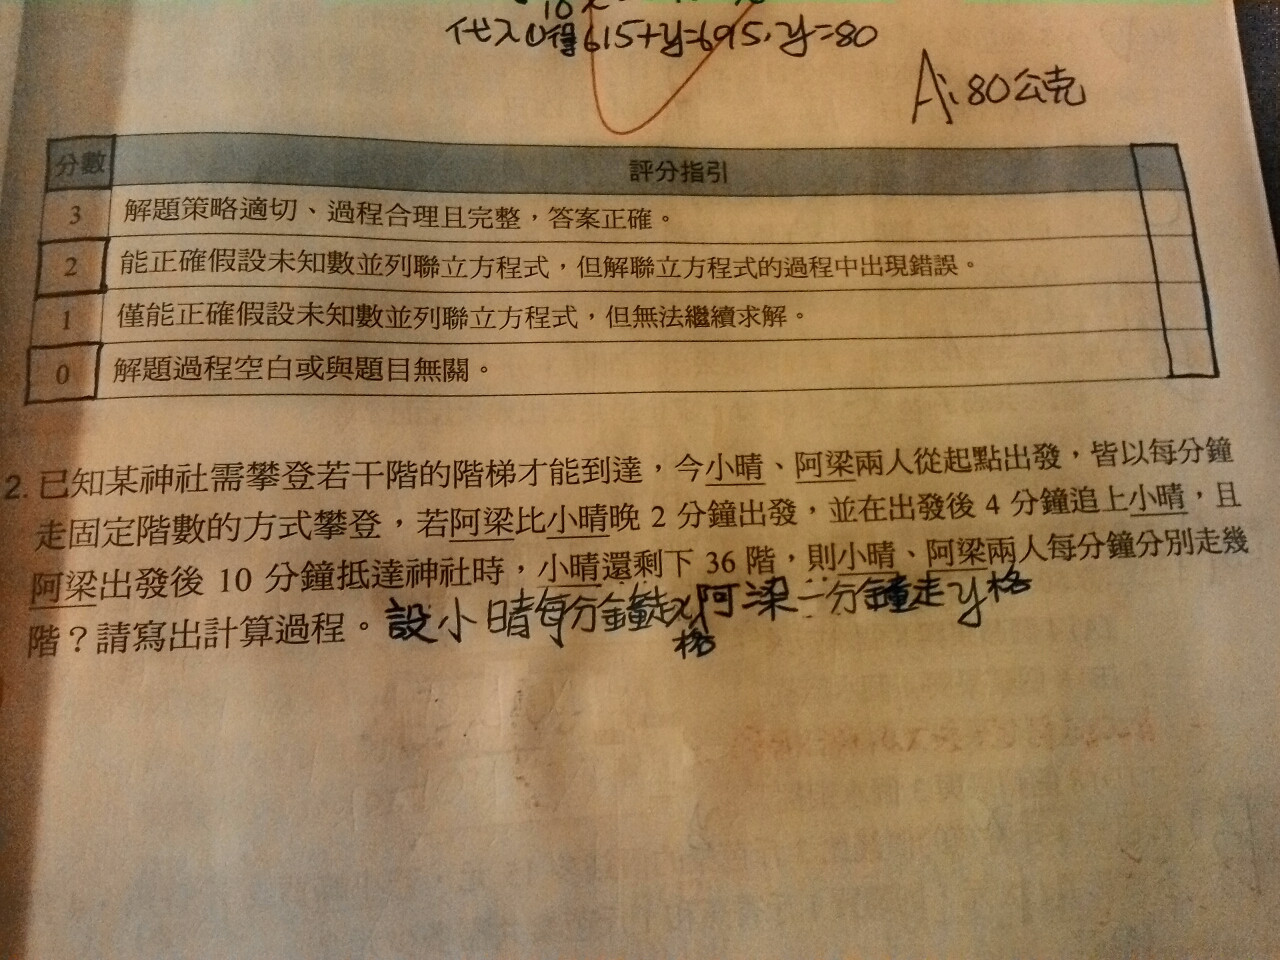 代入①得615+y=695,y=80
A:80公克
分數 評分指引
3 解題策略適切、過程合理且完整,答案正確。
2 能正確假設未知數並列聯立方程式,但解聯立方程式的過程中出現錯誤。
1 僅能正確假設未知數並列聯立方程式,但無法繼續求解。
0 解題過程空白或與題目無關。
2. 已知某神社需攀登若干階的階梯才能到達,今小晴、阿梁兩人從起點出發,皆以每分鐘
走固定階數的方式攀登,若阿梁比小晴晚 2 分鐘出發,並在出發後 4 分鐘追上小晴,且
阿梁出發後 10 分鐘抵達神社時,小晴還剩下 36 階,則小晴、阿梁兩人每分鐘分別走幾
階?請寫出計算過程。
設小晴每分鐘走x格阿梁一分鐘走y格